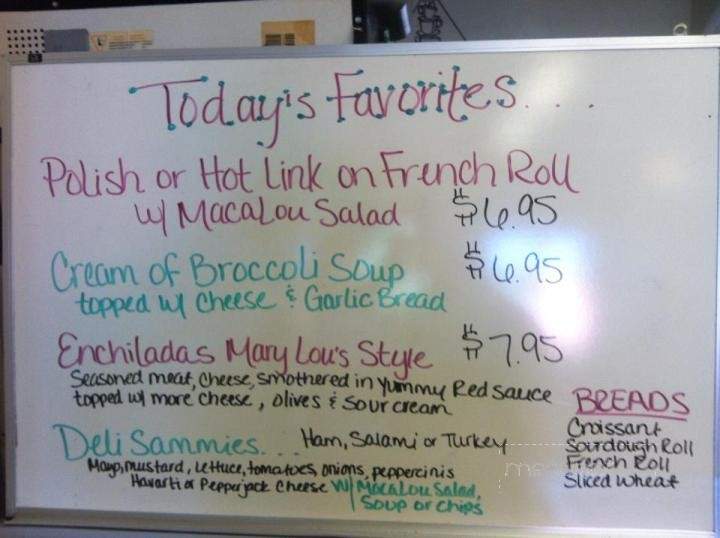 Today's Favorites. . .
Polish or Hot Link on French Roll
w/ MacaLou Salad $6.95
Cream of Broccoli Soup $6.95
topped w/ cheese & Garlic Bread
Enchiladas Mary Lou's Style $7.95
Seasoned meat, cheese, smothered in yummy Red sauce
topped w/ more cheese, olives & sour cream
Deli Sammies. . . Ham, Salami or Turkey
Mayo, mustard, lettuce, tomatoes, onions, peppercinis
Havarti or Pepperjack cheese w/ MacaLou Salad,
Soup or chips
BREADS
Croissant
Sourdough Roll
French Roll
Sliced wheat